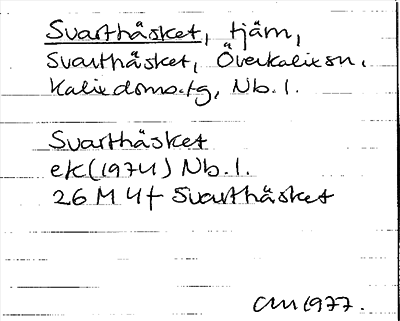 Svarthäsket, tjärn,
Svarthäsket, Överkalix sn,
Kalix doms.tg, Nb. l.
Svarthäsket
ek (1974) Nb. l.
26 M 4f Svarthäsket
CM 1977.